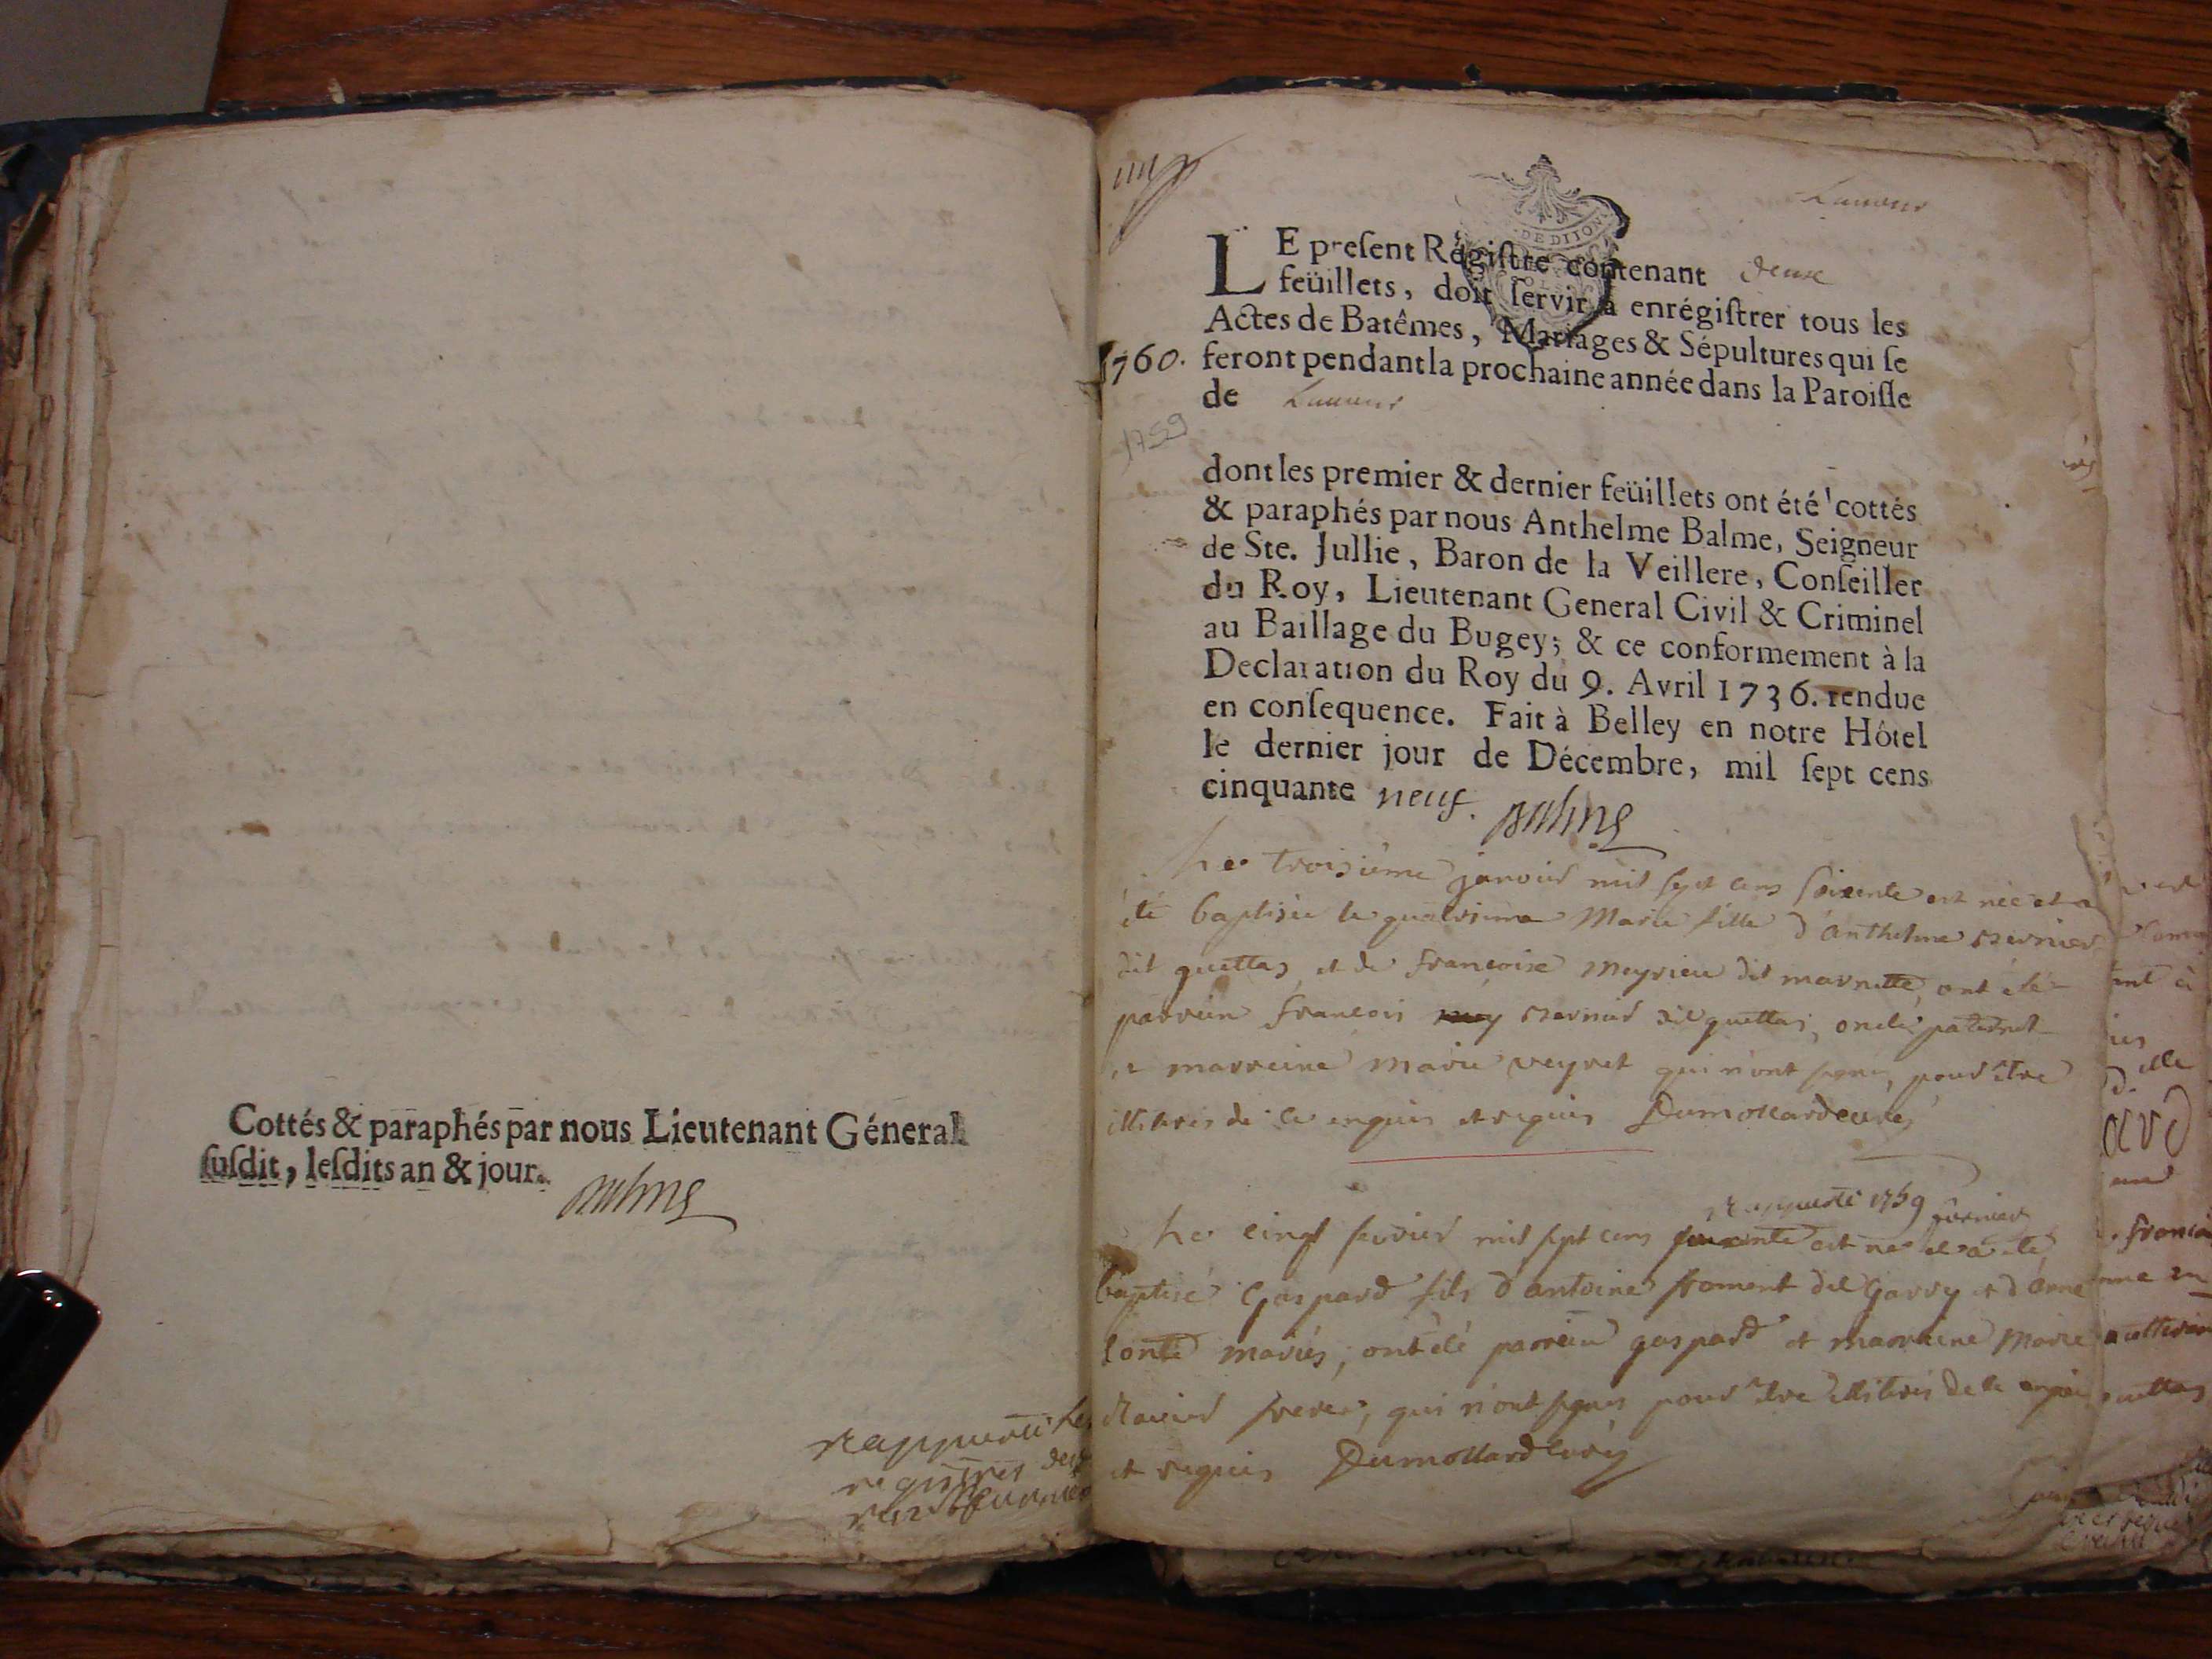 Cottés & paraphés par nous Lieutenant Géneral
ſuſdit, leſdits an & jour.
Balme
DE DIJON
LE preſent Régiſtre contenant
feüillets, doit ſervir à enrégiſtrer tous les
Actes de Batêmes, Mariages & Sépultures qui ſe
1760. feront pendant la prochaine année dans la Paroiſſe
de
1759
dont les premier & dernier feüillets ont été cottés
& paraphés par nous Anthelme Balme, Seigneur
de Ste. Jullie, Baron de la Veillere, Conſeiller
du Roy, Lieutenant General Civil & Criminel
au Baillage du Bugey; & ce conformement à la
Declaration du Roy du 9. Avril 1736. rendue
en conſequence. Fait à Belley en notre Hôtel
le dernier jour de Décembre, mil ſept cens
cinquante neuf. Balme
Le troisième janvier mil sept cens soixente est née et a
été baptisée le quatrieme Marie fille d'anthelme
dit guettas et de françoise meyrieu dit marnette, ont été
parrein françois dit guettas, oncle paternel
et marreine marie veyret qui n'ont signés, pour être
illiterés de ce enquis et requis Dumollard curé
1759
Le cinq fevrier mil sept cens soixente est né et a été
baptisé Gaspard fils d'antoine froment dit Garry et d'anne
mariés, ont été parrein gaspard et marreine Marie
freres, qui n'ont signés pour être illiterés de ce enquis
et requis Dumollard curé